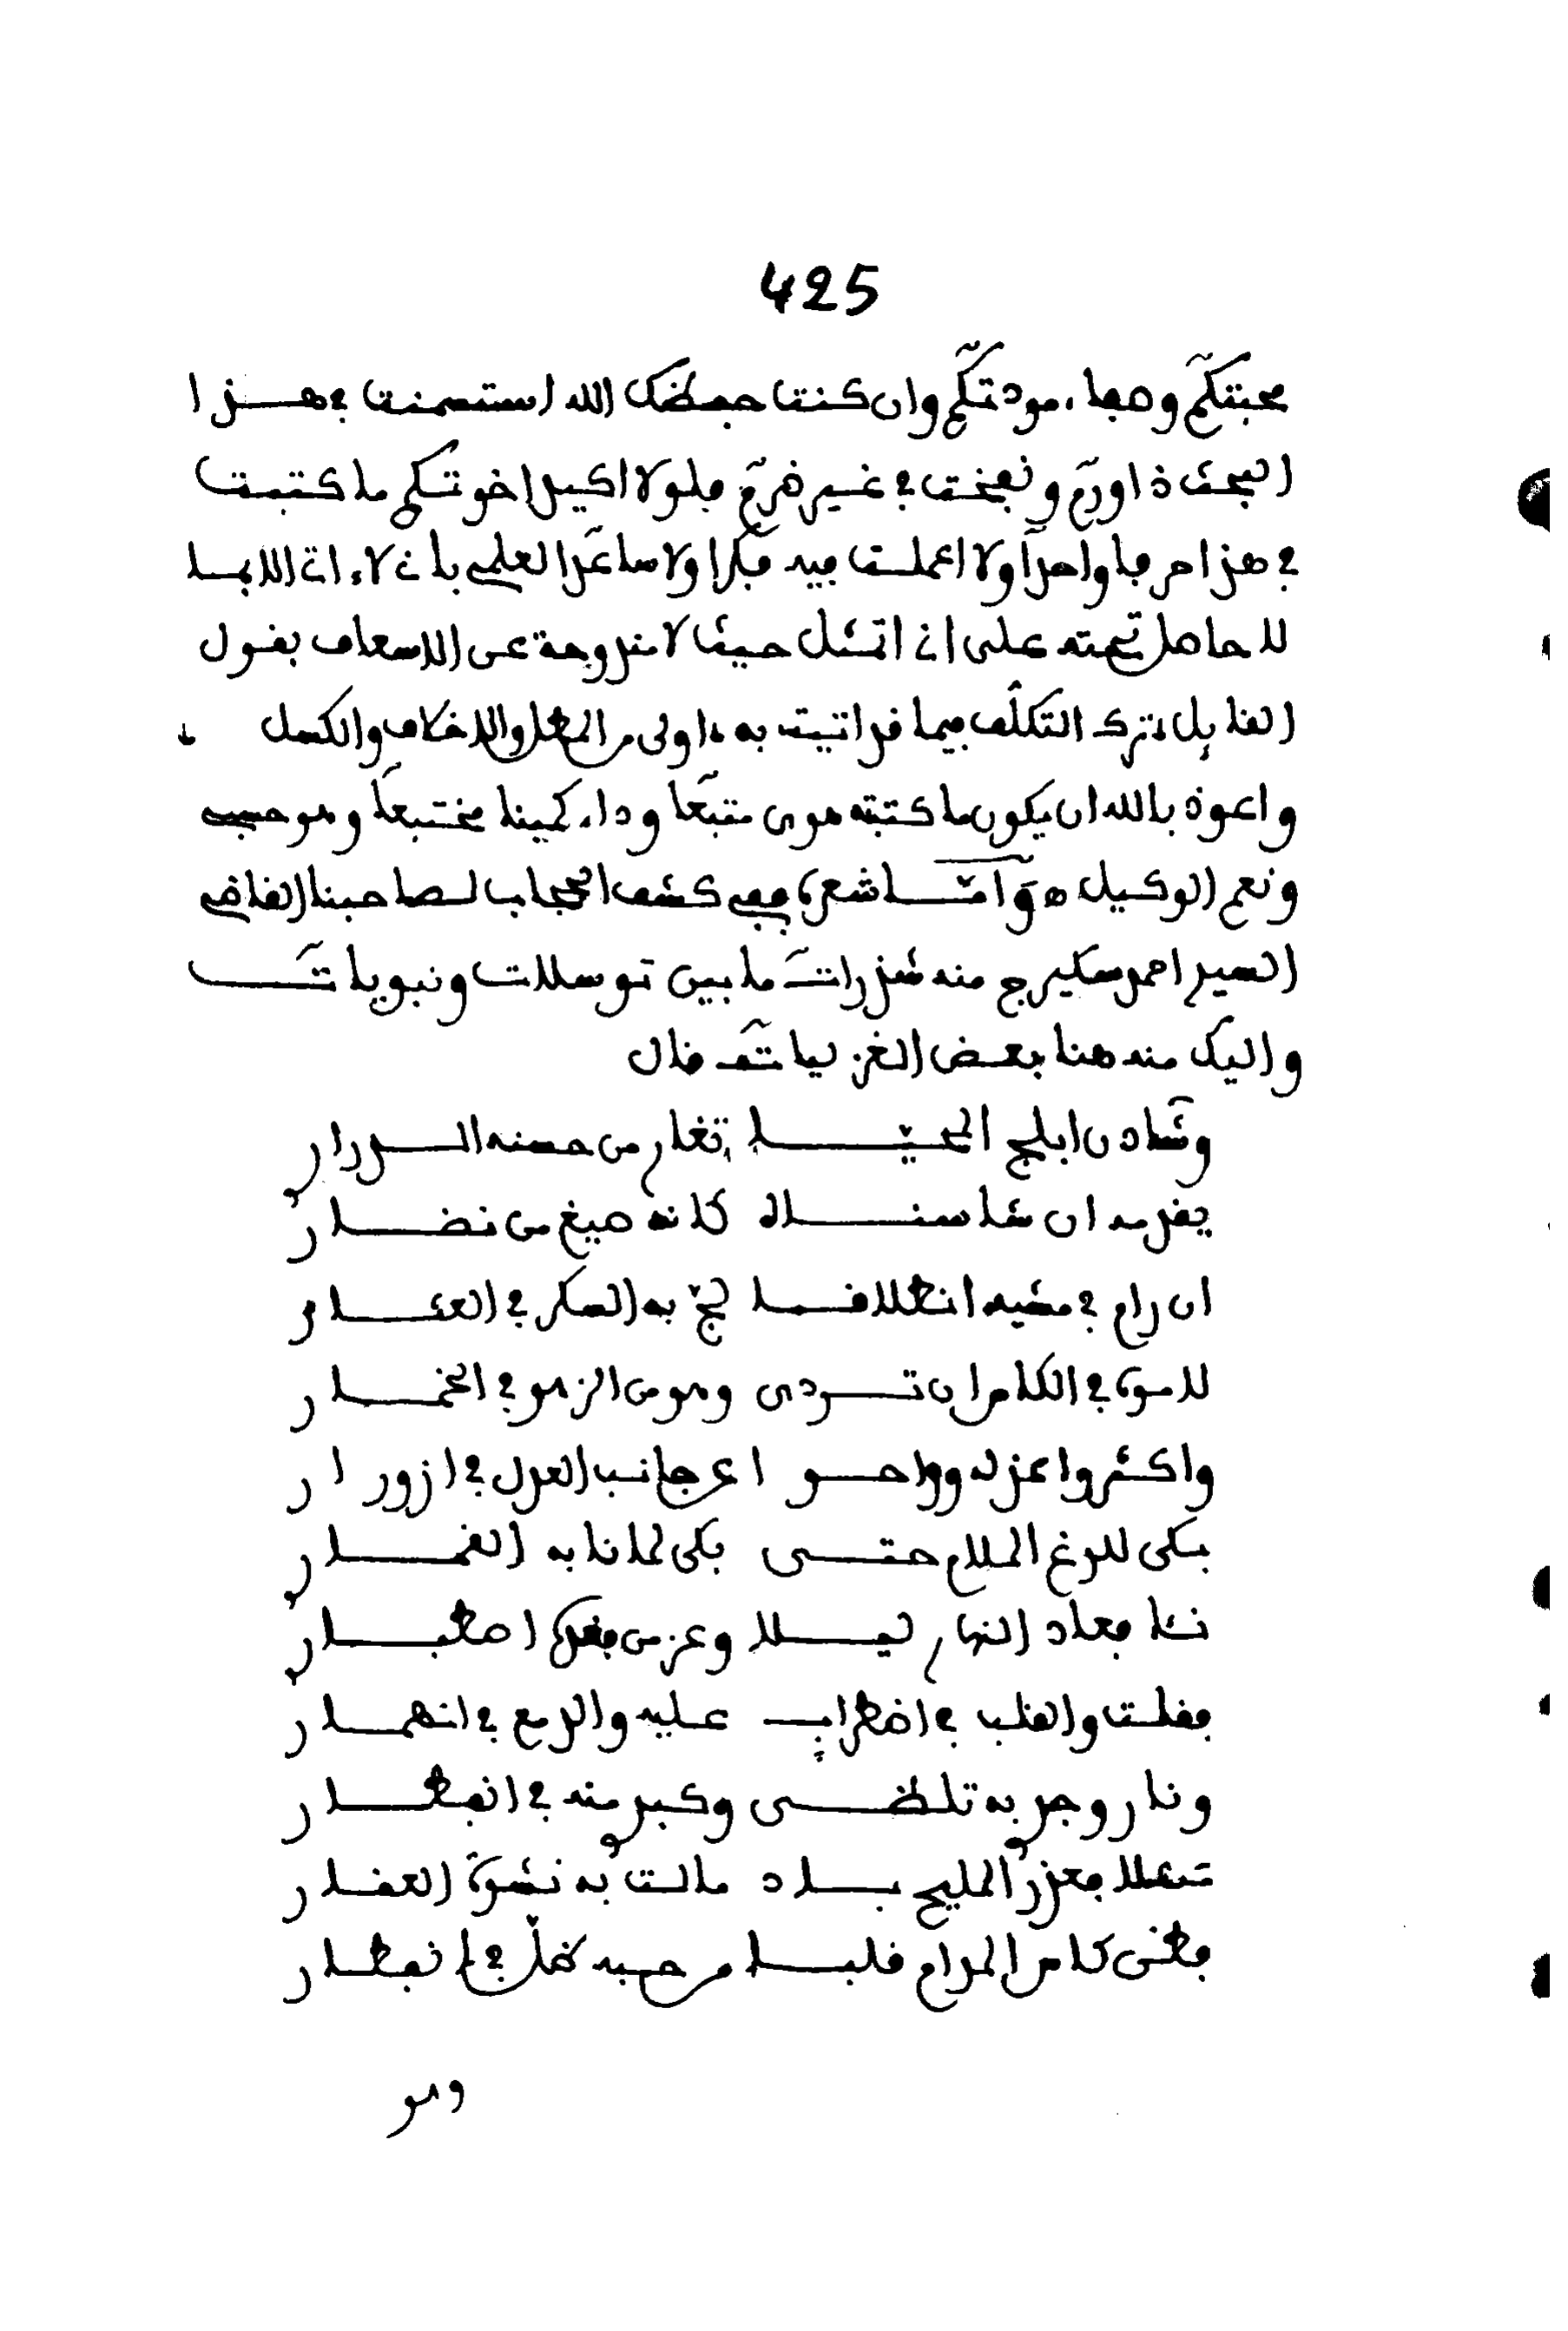 425
محبتكم وصفاء مودتكم وان كنت حفظك الله استسمنت في هذا
البحث ذا ورم ونفخت في غير ضرم فلولا اكيد اخوتكم ما كتبت
في هذا حرفا واحدا ولا اعملت فيه فكرا ولا ساعد القلم بان لاءات الايما
لا حاصل تحته على اني اتمثل حيث لا مندوحة عن الاسعاف بقول
القايل ترك التكلف فيما قد اتيت به اولى من المطل والاخلاف والكسل
واعوذ بالله ان يكون ما كتبته هوى متبعا وداء كمينا مختبعا وهو حسبي
ونعم الوكيل ه وامّا شعره ففي كشف الحجاب لصاحبنا القاضي
السيد احمد سكيرج منه شذرات ما بين توسلات ونبويات
واليك منه هنا بعض الغزليات قال
وشادن ابلج المحيا تغار من حسنه الدرار
يفديه ان شا سناه كانه صيغ من نضار
ان رام في مشيه انطلاقا لجّ به السكر في العثار
لا سوء في الكلام ان تردى وهو من الزهو في الخمار
واكثروا عذله وواحوا عن جانب العدل في ازورار
بكى للدغ الملام حتى بكى لما نابه الغمار
نئا فعاد النهار ليلا وعز من فقده اصطبار
فقلت والقلب في اضطراب عليه والدمع في انهمار
ونار وجد به تلظى وكبد منه في انفطار
مهلا فعذر المليح باد مالت به نشوة العقار
فطنى كاس المدام قلبا من حبه ظل في انفطار
وهو